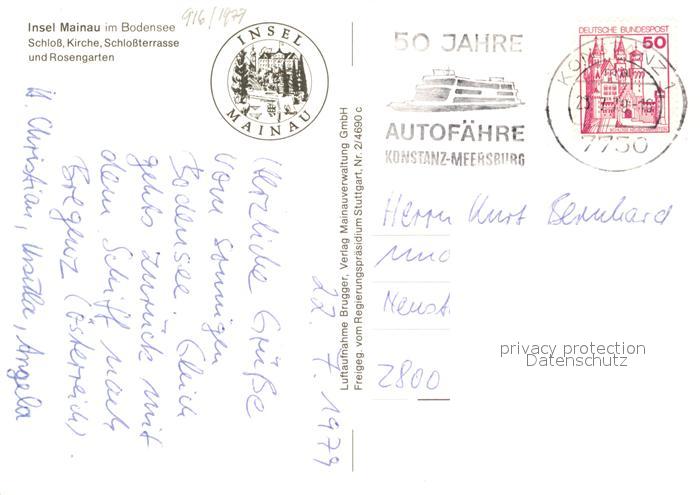 916/1977
Insel Mainau im Bodensee
Schloß, Kirche, Schloßterrasse
und Rosengarten
INSEL
MAINAU
50 JAHRE
AUTOFÄHRE
KONSTANZ-MEERSBURG
DEUTSCHE BUNDESPOST
50
KONSTANZ 1
7750
22. 7. 1979
Herzliche Grüße
vom sonnigen
Bodensee. Gleich
gehts zurück mit
dem Schiff nach
Bregenz (Österreich).
Christian, Ursula, Angela
Luftaufnahme Brugger, Verlag Mainauverwaltung GmbH
Freigeg. vom Regierungspräsidium Stuttgart, Nr. 2/4690 c
Herrn Kurt Bernhard
und
Neust
2800
privacy protection
Datenschutz